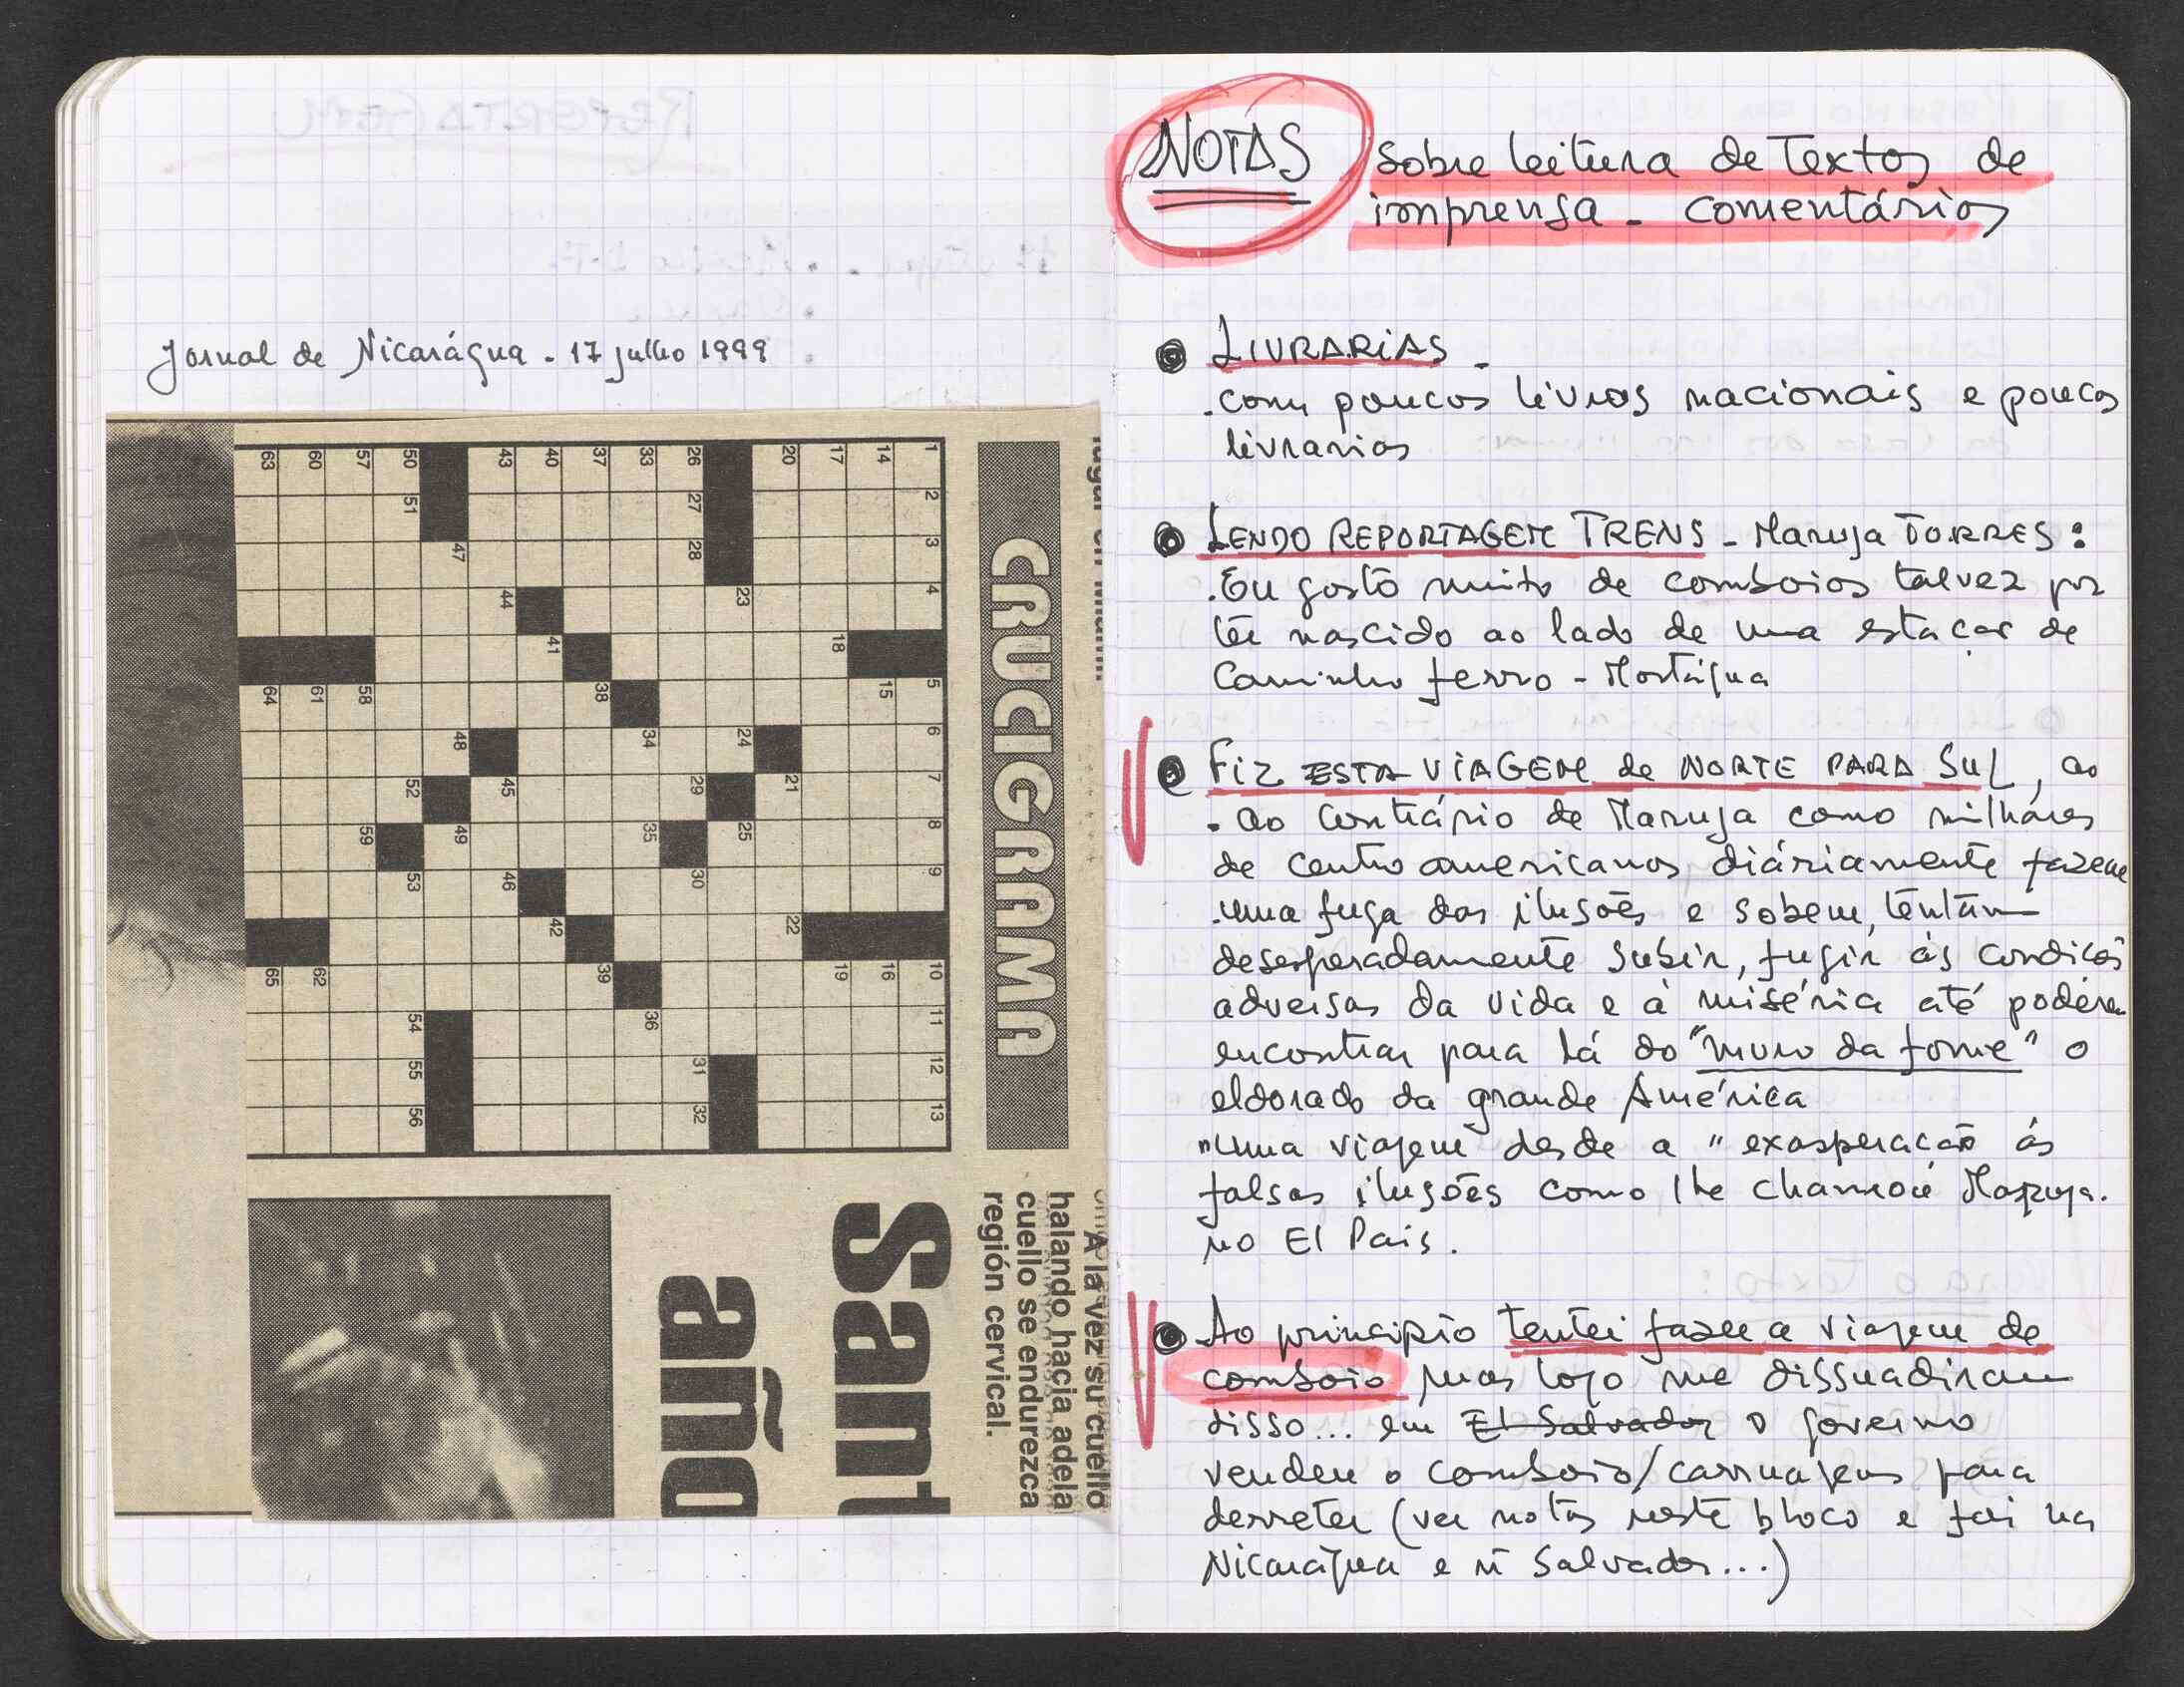 Jornal de Nicarágua - 17 julho 1999
CRUCIGRAMA
1 2 3 4 5 6 7 8 9 10 11 12 13
14 15 16
17 18 19
20 21 22
23 24 25
26 27 28 29 30 31 32
33 34 35 36
37 38 39
40 41 42
43 44 45 46
47 48 49
50 51 52 53 54 55 56
57 58 59
60 61 62
63 64 65
A la vez su cuello
halando hacia adela
cuello se endurezca
región cervical.
Sant
año
NOTAS sobre leitura de textos de
imprensa - comentários
LIVRARIAS -
.com poucos livros nacionais e poucas
livrarias
LENDO REPORTAGEM TRENS - Maruja TORRES:
.Eu gosto muito de comboios talvez por
ter nascido ao lado de uma estação de
Caminho ferro - Mortágua
FIZ ESTA VIAGEM de NORTE PARA SUL, ao
. ao contrário de Maruja como milhares
de centro americanos diáriamente fazem
.uma fuga das ilusões e sobem, tentam
desesperadamente subir, fugir ás condições
adversas da vida e á miséria até poderem
encontrar para lá do "muro da fome" o
eldorado da grande América
"Uma viagem desde a " exasperação ás
falsas ilusões como lhe chamou Maruja.
no El Pais.
Ao principio tentei fazer a viagem de
comboio mas logo me dissuadiram
disso... em El Salvador o governo
vendeu o comboio/carruagens para
derreter (ver notas neste bloco e foi na
Nicarágua e ñ Salvador...)